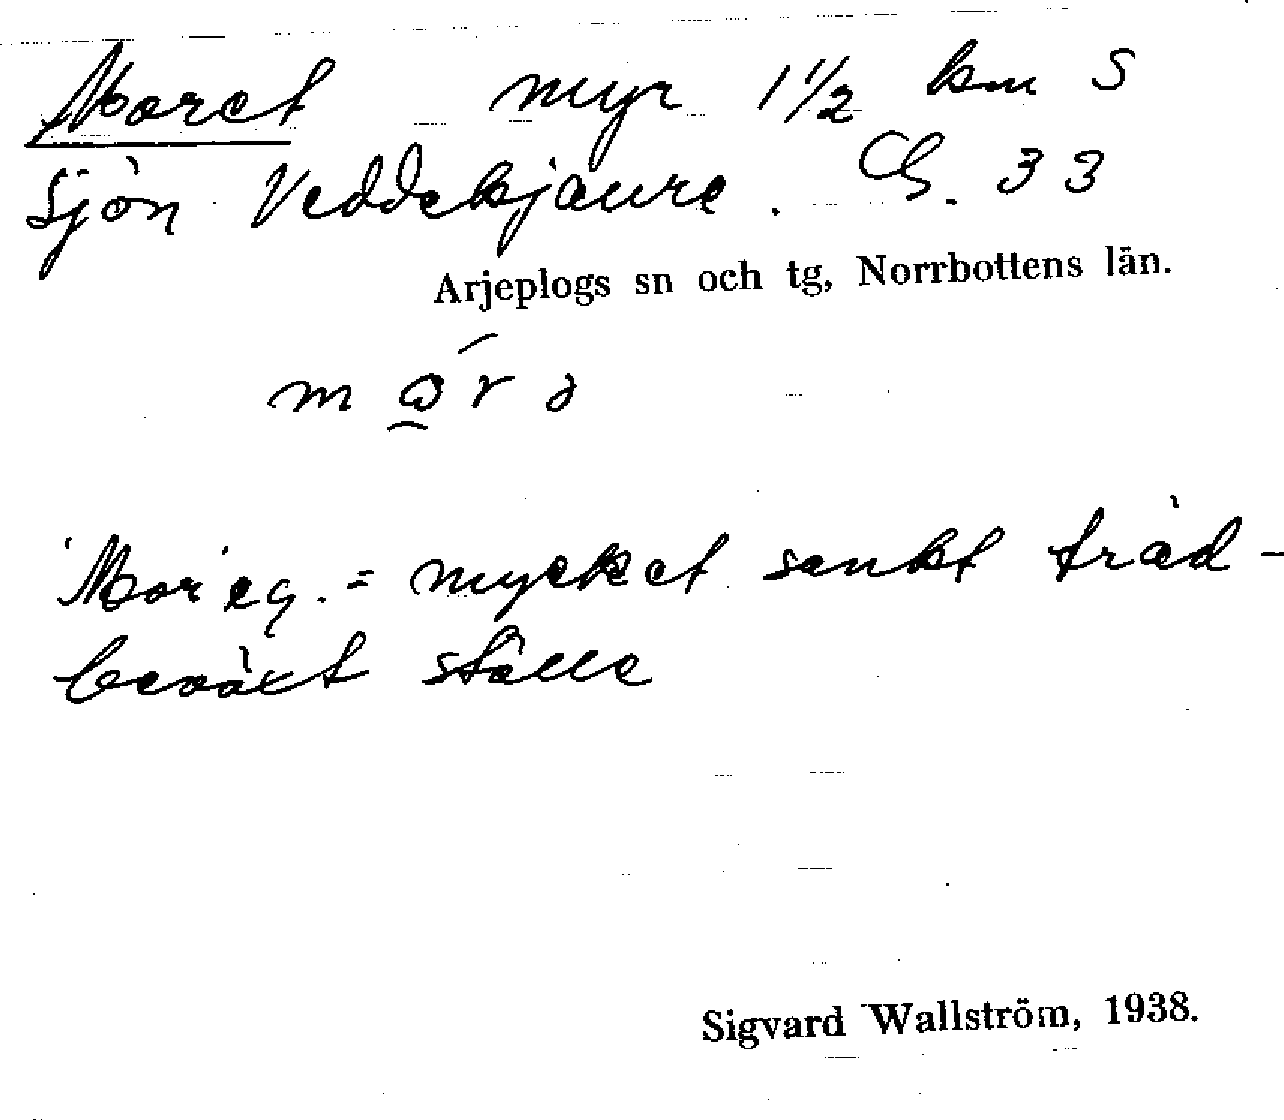 Moret myr 1 1/2 km S
sjön Veddekjaure. Cb. 33
Arjeplogs sn och tg, Norrbottens län.
'Mor' eg. = mycket sankt träd-
beväxt ställe
Sigvard Wallström, 1938.